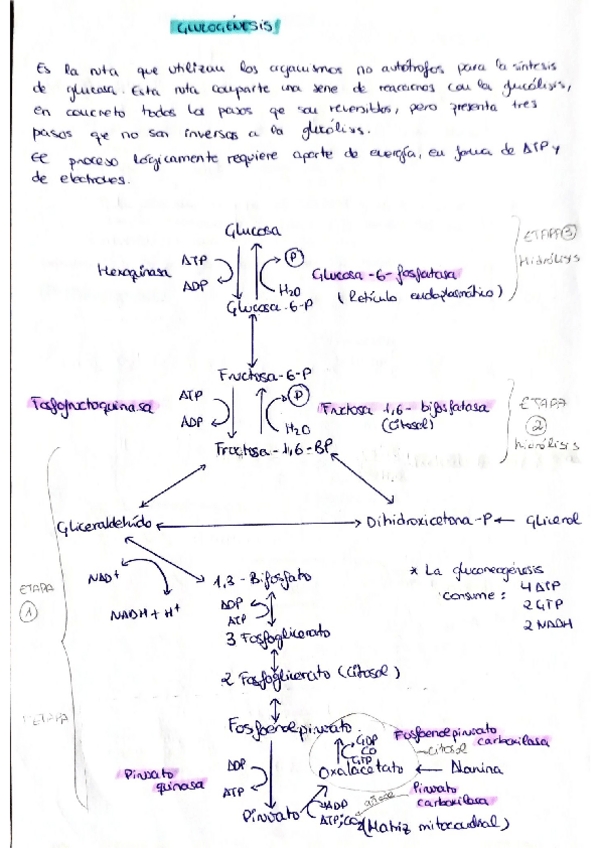 GLUCOGÉNESIS
Es la ruta que utilizan los organismos no autótrofos para la síntesis
de glucosa. Esta ruta comparte una serie de reacciones con la glucólisis,
en concreto todos los pasos qe son reversibles, pero presenta tres
pasos qe no son inversos a la glucólisis.
El proceso lógicamente requiere aporte de energía, en forma de ATP y
de electrones.
Glucosa
ETAPA 3
Hidrólisis
Hexoquinasa
ATP
ADP
P
H2O
Glucosa-6-fosfatasa
(Retículo endoplasmático)
Glucosa-6-P
Fructosa-6-P
Fosfofructoquinasa
ATP
ADP
P
H2O
Fructosa 1,6-bifosfatasa
(Citosol)
ETAPA
2
hidrólisis
Fructosa-1,6-BP
Gliceraldehído
Dihidroxicetona-P
Glicerol
NAD+
NADH + H+
1,3-Bifosfato
* La gluconeogénesis
consume: 4 ATP
2 GTP
2 NADH
ETAPA
1
ADP
ATP
3 Fosfoglicerato
2 Fosfoglicerato (Citosol)
1ª ETAPA
Fosfoenolpiruvato
GDP
CO
GTP
Fosfoenolpiruvato
carboxilasa
citosol
Piruvato
quinasa
ADP
ATP
Oxalacetato
Alanina
Piruvato
ADP
ATP;CO2
Piruvato
carboxilasa
(Matriz mitocondrial)